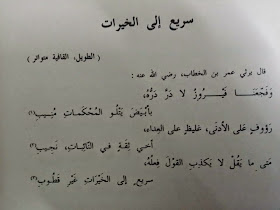 سريع إلى الخيرات
(الطويل، القافية متواتر)
قال يرثي عمر بن الخطاب، رضي الله عنه :
وَفَجَّعَنَا فَيْرُوزُ لا دَرَّ دَرُّهُ،
بأبْيَضَ يَتْلُو المُحْكَماتِ مُنِيبِ (١)
رَؤوفٍ عَلى الأدْنَى، غَليظٍ عَلى العِداء،
أخي ثِقَةٍ في النَّائِباتِ، نَجِيبِ (٢)
مَتَى ما يَقُلْ لا يَكْذِبِ القَوْلَ فِعْلُهُ،
سَريعٍ إلى الخَيْرَاتِ غَيْرِ قَطُوبِ (٣)